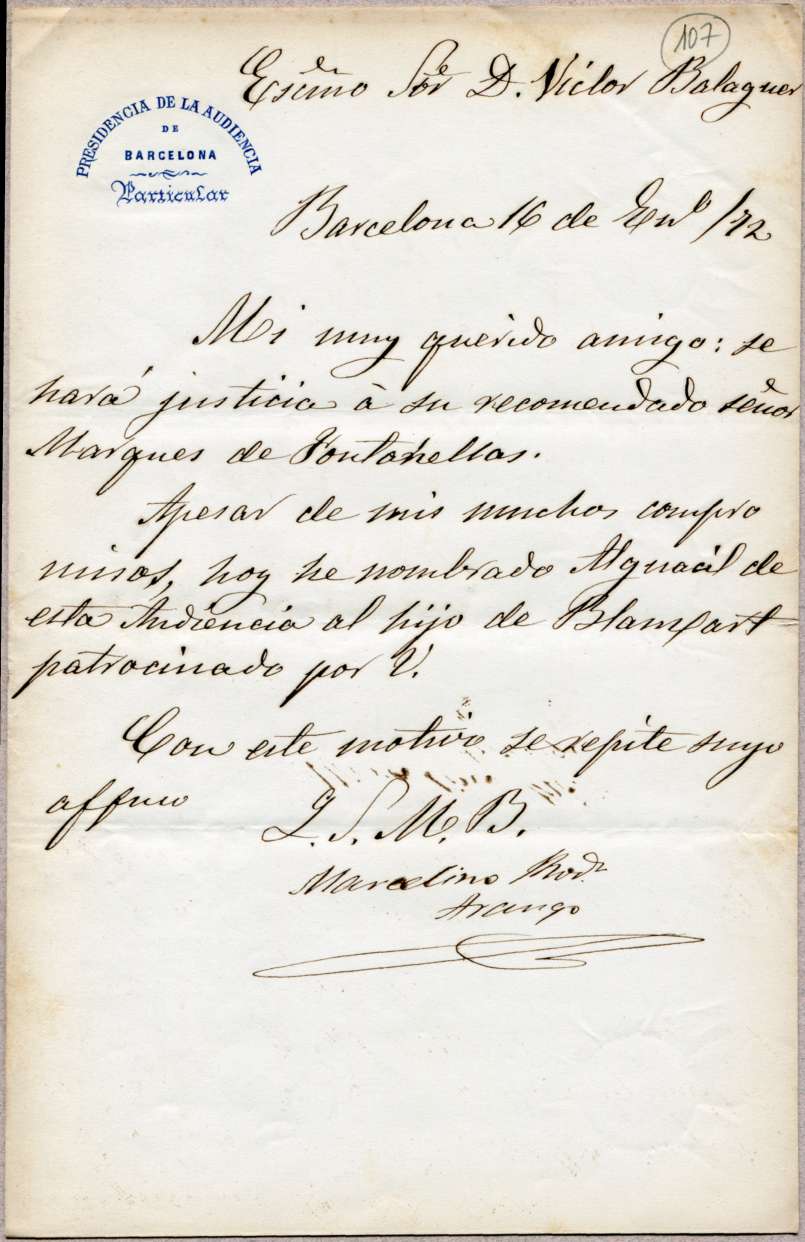 107
Escmo Sor D. Victor Balaguer
PRESIDENCIA DE LA AUDIENCIA
DE
BARCELONA
Particular
Barcelona 16 de Eno /72
Mi muy querido amigo: se
hará justicia à su recomendado señor
Marques de Fontanellas.
Apesar de mis muchos compro
misos, hoy he nombrado Alguacil de
esta Audiencia al hijo de Blanxart
patrocinado por V.
Con este motivo se repite suyo
affmo
Q. S. M. B.
Marcelino Rodz
Arango